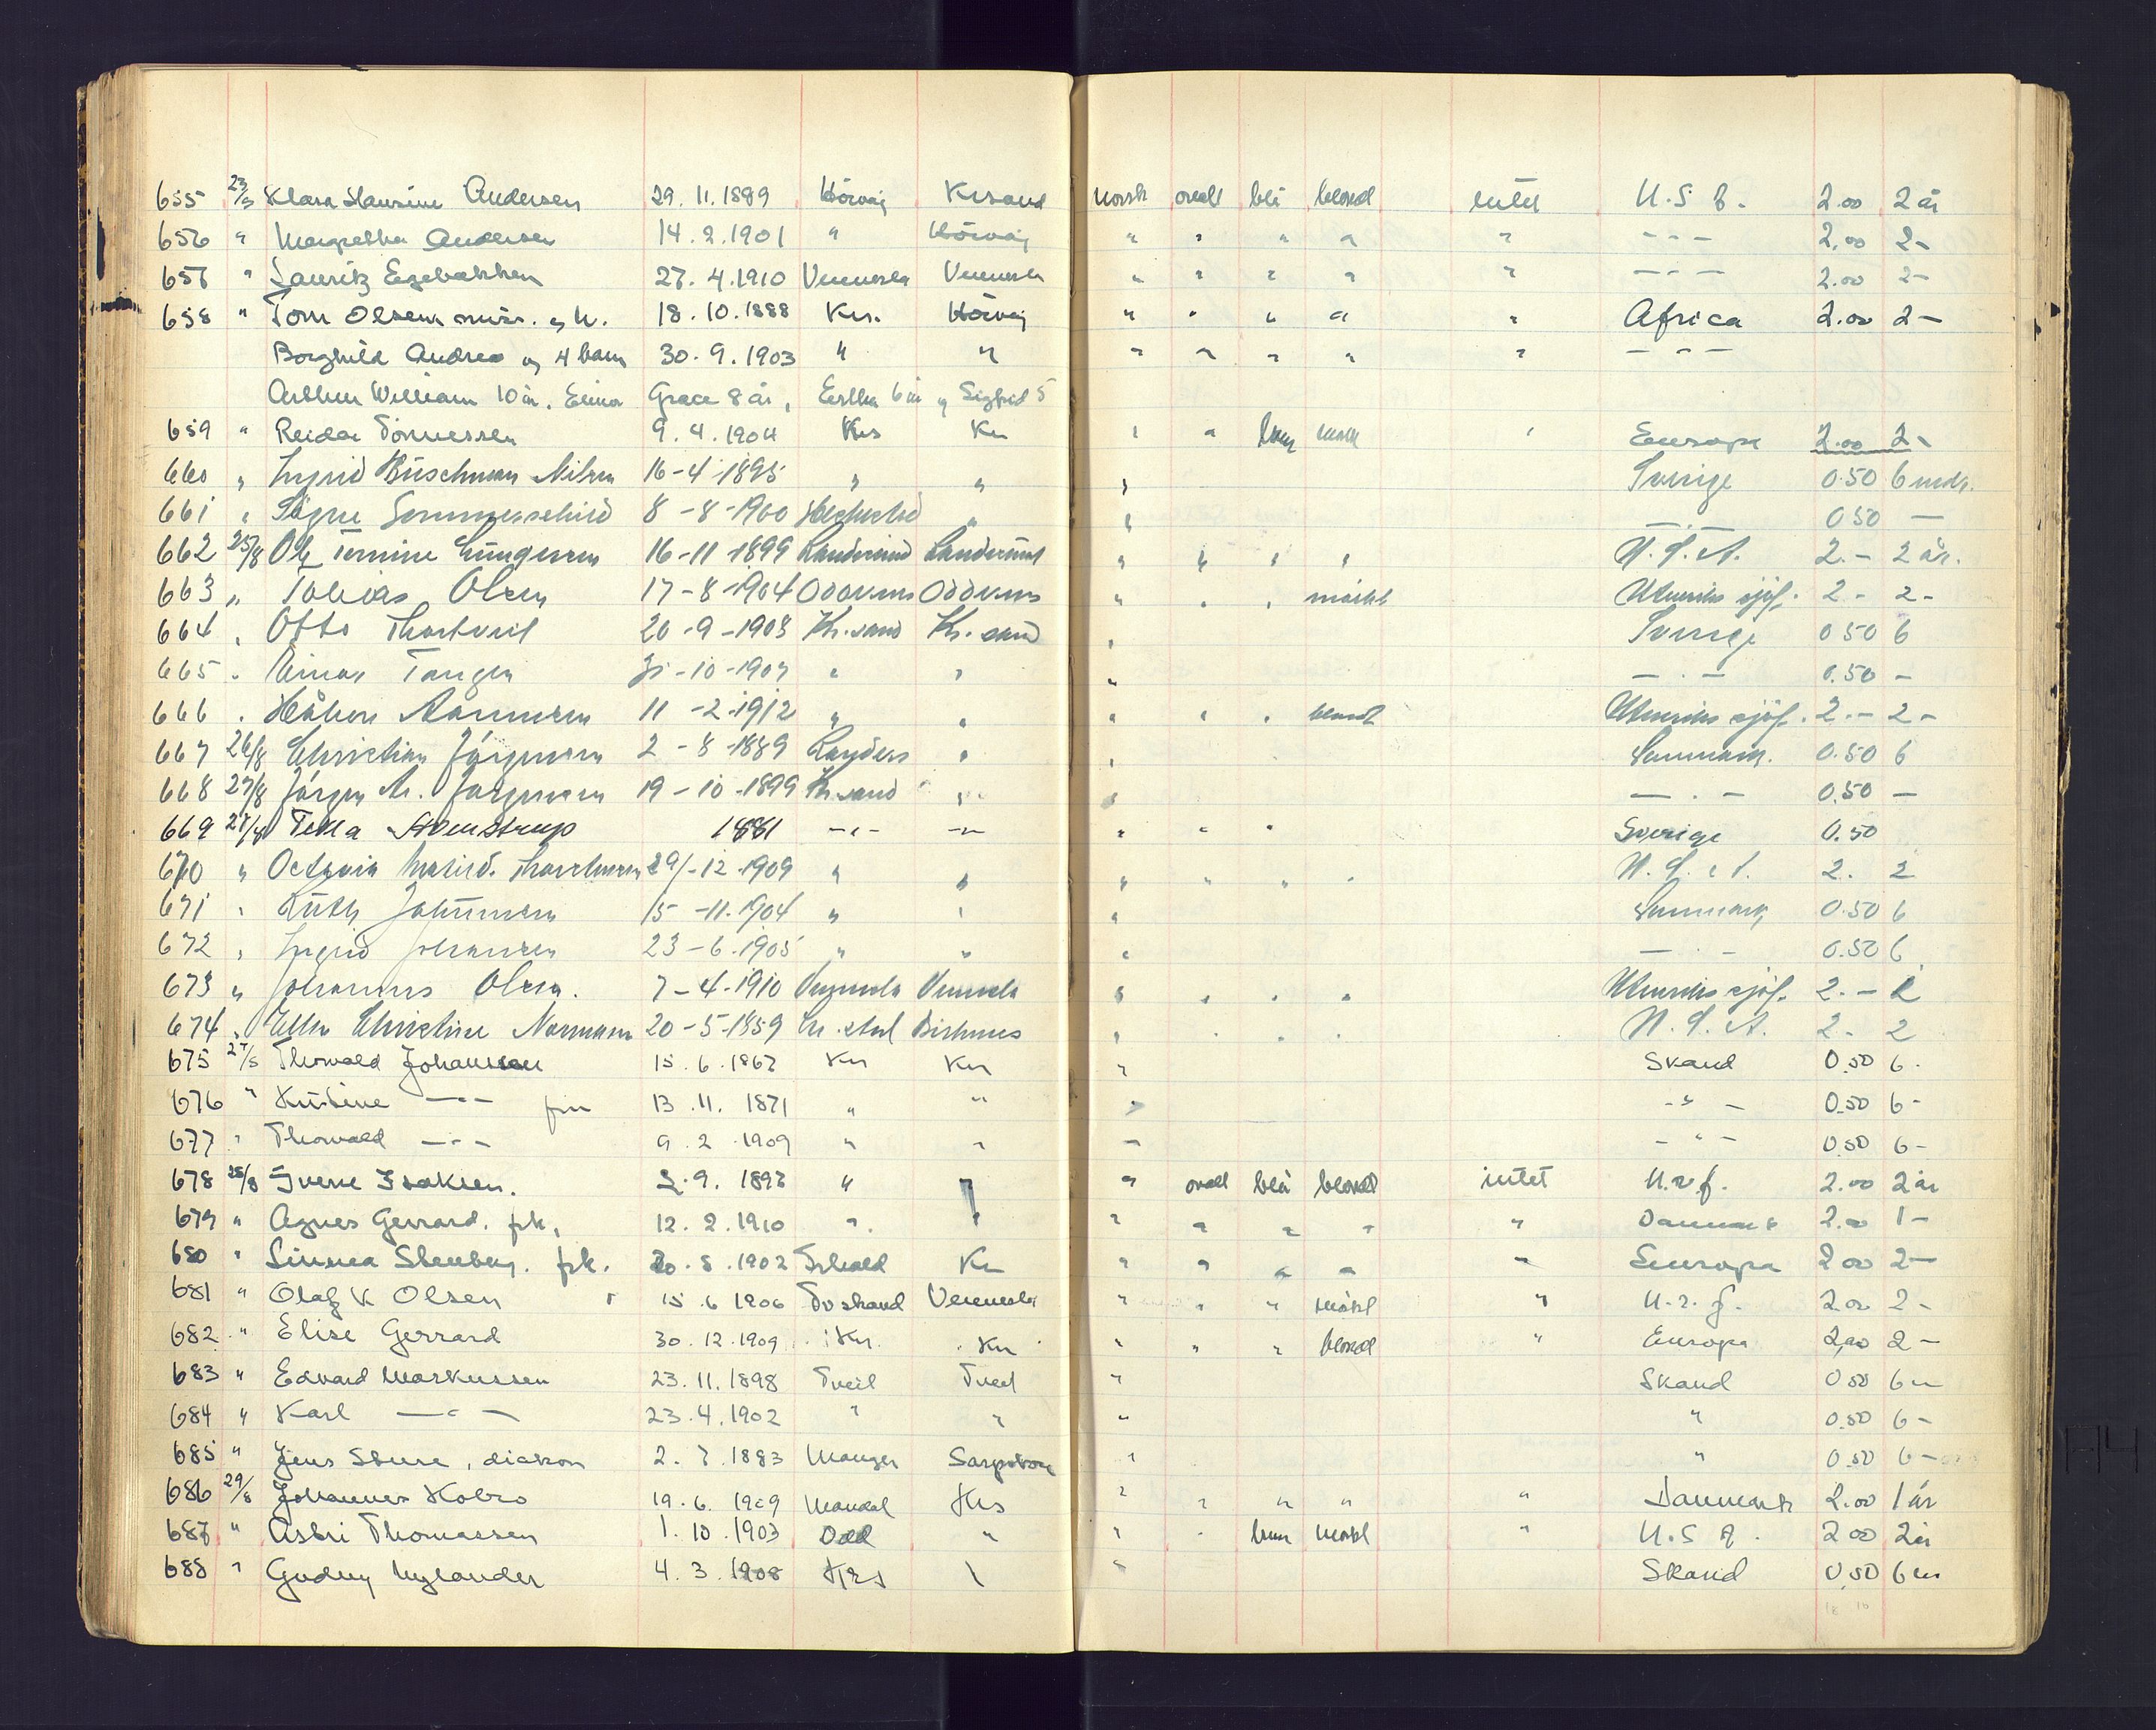 655 23/8 Klara Hansine Andersen 29.11.1899 Hövåg Krsand norsk ovalt blå blond intet U.S.A. 2.00 2 år
656 " Margretha Andersen 14.2.1901 " Hövåg " " " " " - " - 2.00 2 -
657 " Lauritz Egebakken 27.4.1910 Vennesla Vennesla " " " " " - " - 2.00 2 -
658 " Tom Olsen misr. og h. 18.10.1888 Krs. Hövåg " " " " " Africa 2.00 2 -
Borghild Andrea og 4 barn 30.9.1903 " " " " " " " - " -
Arthur William 10 år, Elina Grace 8 år, Esther 6 år og Sigfrid 5
659 " Reidar Tönnessen 9.4.1904 Krs Kr " " brun mørk " Europa 2.00 2 -
660 " Ingrid Büschman Nilsen 16-4-1895 " " " Sverige 0.50 6 mdr.
661 " Signe Sommerschild 8-8-1900 " " - " - 0.50 -
662 25/8 16-11-1899 Randesund Randesund " " " " U.S.A. 2.- 2 år.
663 " Tobias Olsen 17-8-1904 Oddernes Oddernes " " " mörkt Utenriks sjöf. 2 - 2 -
664 " Otto Thortveit 20-9-1903 Kr.sand Kr.sand " Sverige 0.50 6
665 " Einar Tangen 31-10-1907 " " " - " - 0.50 -
666 " Håkon Aanensen 11-2-1912 " " " " " blondt Utenriks sjöf. 2.- 2 -
667 26/8 Christian Jörgensen 2-8-1889 Randers " " Danmark. 0.50 6
668 27/8 Jörgen M. Jörgensen 19-10-1899 Kr.sand " " - " - 0.50 -
669 27/8 Tekla Almstrup 1881 - " - - " - " " " Sverige 0.50
670 " Octavia 29/-12-1909 " " " " " " U.S.A. 2. 2
671 " Ruth Johannesen 15-11-1904 " " " Danmark 0.50 6
672 " Ingrid Johansen 23-6-1905 " " " - " - 0.50 6
673 " Johannes Olsen. 7-4-1910 Vennesla Vennesla " " " " Utenriks sjöf. 2.- 2
674 " Ellen Christine Normann 20-5-1859 Birkenes " " " " U.S.A. 2 - 2
675 27/8 Thorvald Johannsen 15.6.1867 Krs Krs " Skand 0.50 6 -
676 " Kristine - " - fru 13.11.1871 " " " - " - 0.50 6 -
677 " Thorvald - " - 9.2.1909 " " " - " - 0.50 6 -
678 28/8 Sverre Isaksen. 2.9.1897 " " " ovalt blå blondt intet U.r.f. 2.00 2 år
679 " Agnes Gerrard. frk, 12.2.1910 " " " " " " " Danmark 2.00 1 -
680 " Linnea Stenberg. frk. 20.5.1902 Kr " " " " " Europa 2.00 2 -
681 " Olaf K Olsen 15.6.1906 Vennesla " " " mörkt " U.r.f. 2.00 2 -
682 " Elise Gerrard 30.12.1909 Kr. Kr " " " blond " Europa 2.00 2 -
683 " Edvard Markussen 23.11.1898 Tveit Tveit " Skand 0.50 6 m
684 " Karl - " - 23.4.1902 " " " " 0.50 6 -
685 " Jens Sture, diakon 2.7.1883 Manger Sarpsborg " " 0.50 6 -
686 29/8 Johannes Kobro 19.6.1909 Mandal Krs " " " " " Danmark 2.00 1 år
687 " Astri Thomassen 1.10.1903 Odd " " " brun mørkt " U.S.A. 2.00 2 år
688 " Gudny Nylander 4.3.1908 Krs " " Skand 0.50 6 m